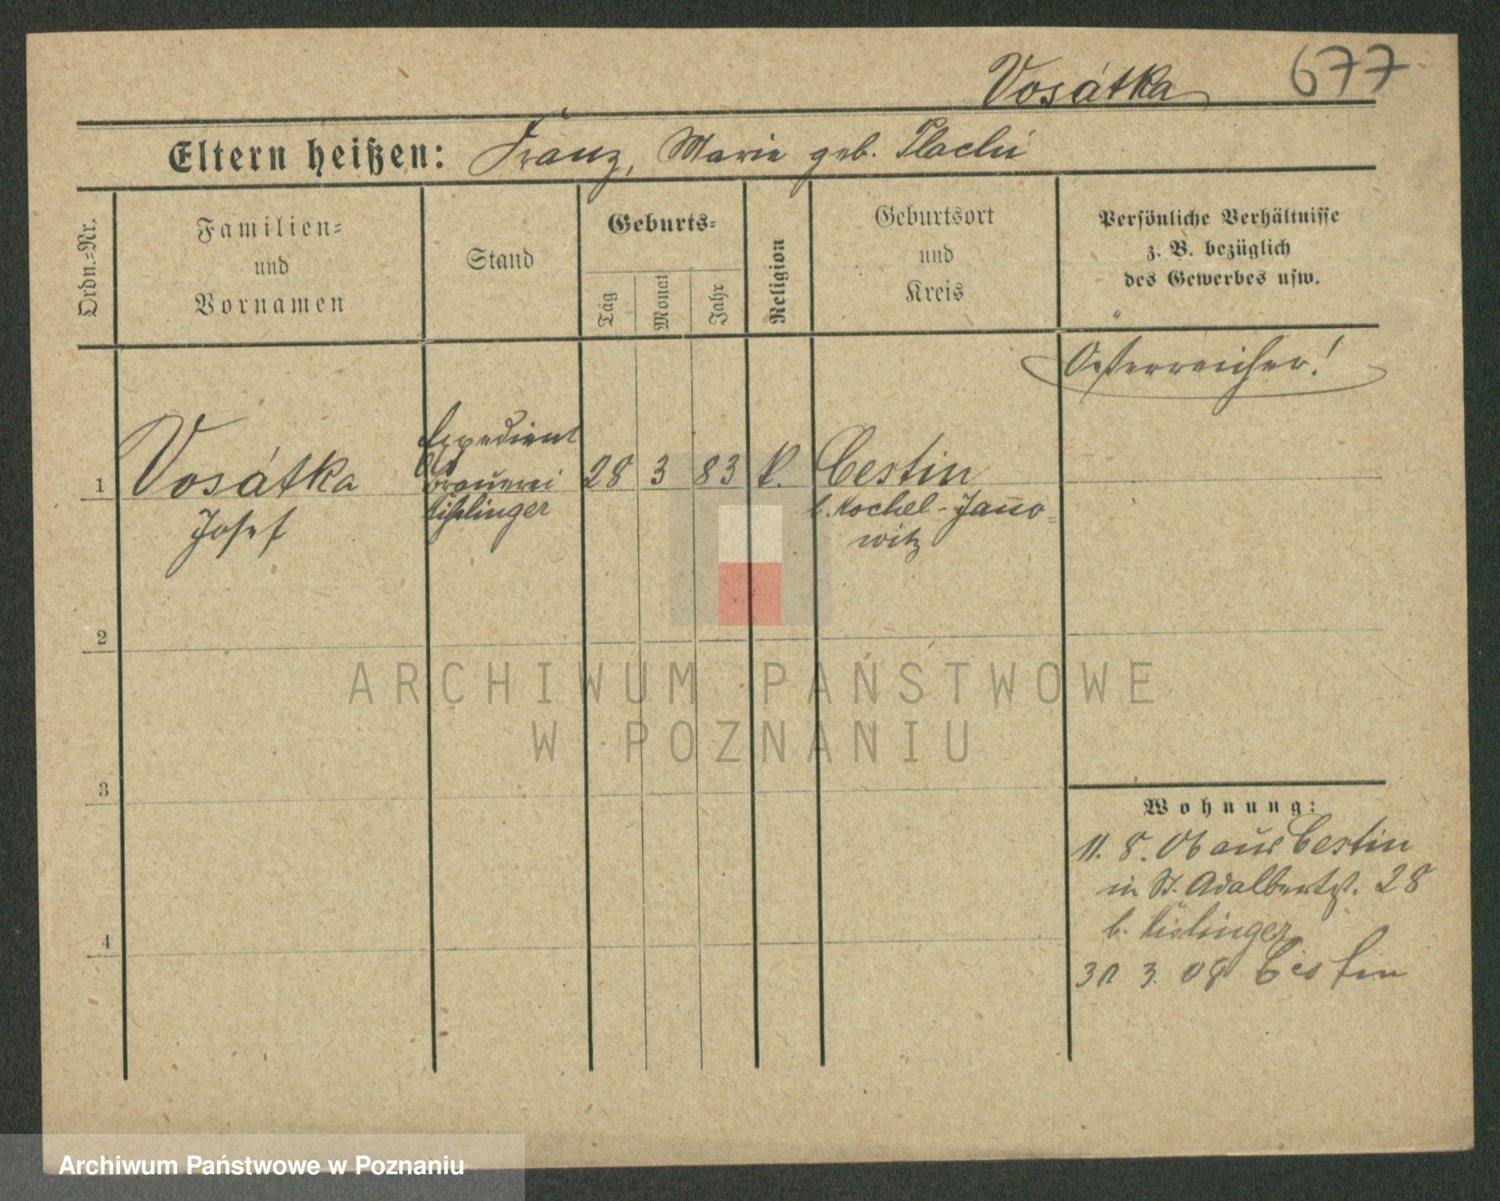 Vosátka 677
Eltern heißen: Franz, Marie geb. Plachú
Ordn.-Nr.
Familien-
und
Vornamen
Stand
Geburts-
Tag
Monat
Jahr
Religion
Geburtsort
und
Kreis
Persönliche Verhältnisse
z. B. bezüglich
des Gewerbes usw.
Oesterreicher!
1
Vosátka
Josef
Expedient
Brauerei
28 3 83 k.
Cestin
b. Kochel-Jano-
witz
2
3
4
Wohnung:
11. 8. 06 aus Cestin
in St. Adalbertst. 28
b.
31 3. 08 Cestin
ARCHIWUM PAŃSTWOWE
W POZNANIU
Archiwum Państwowe w Poznaniu